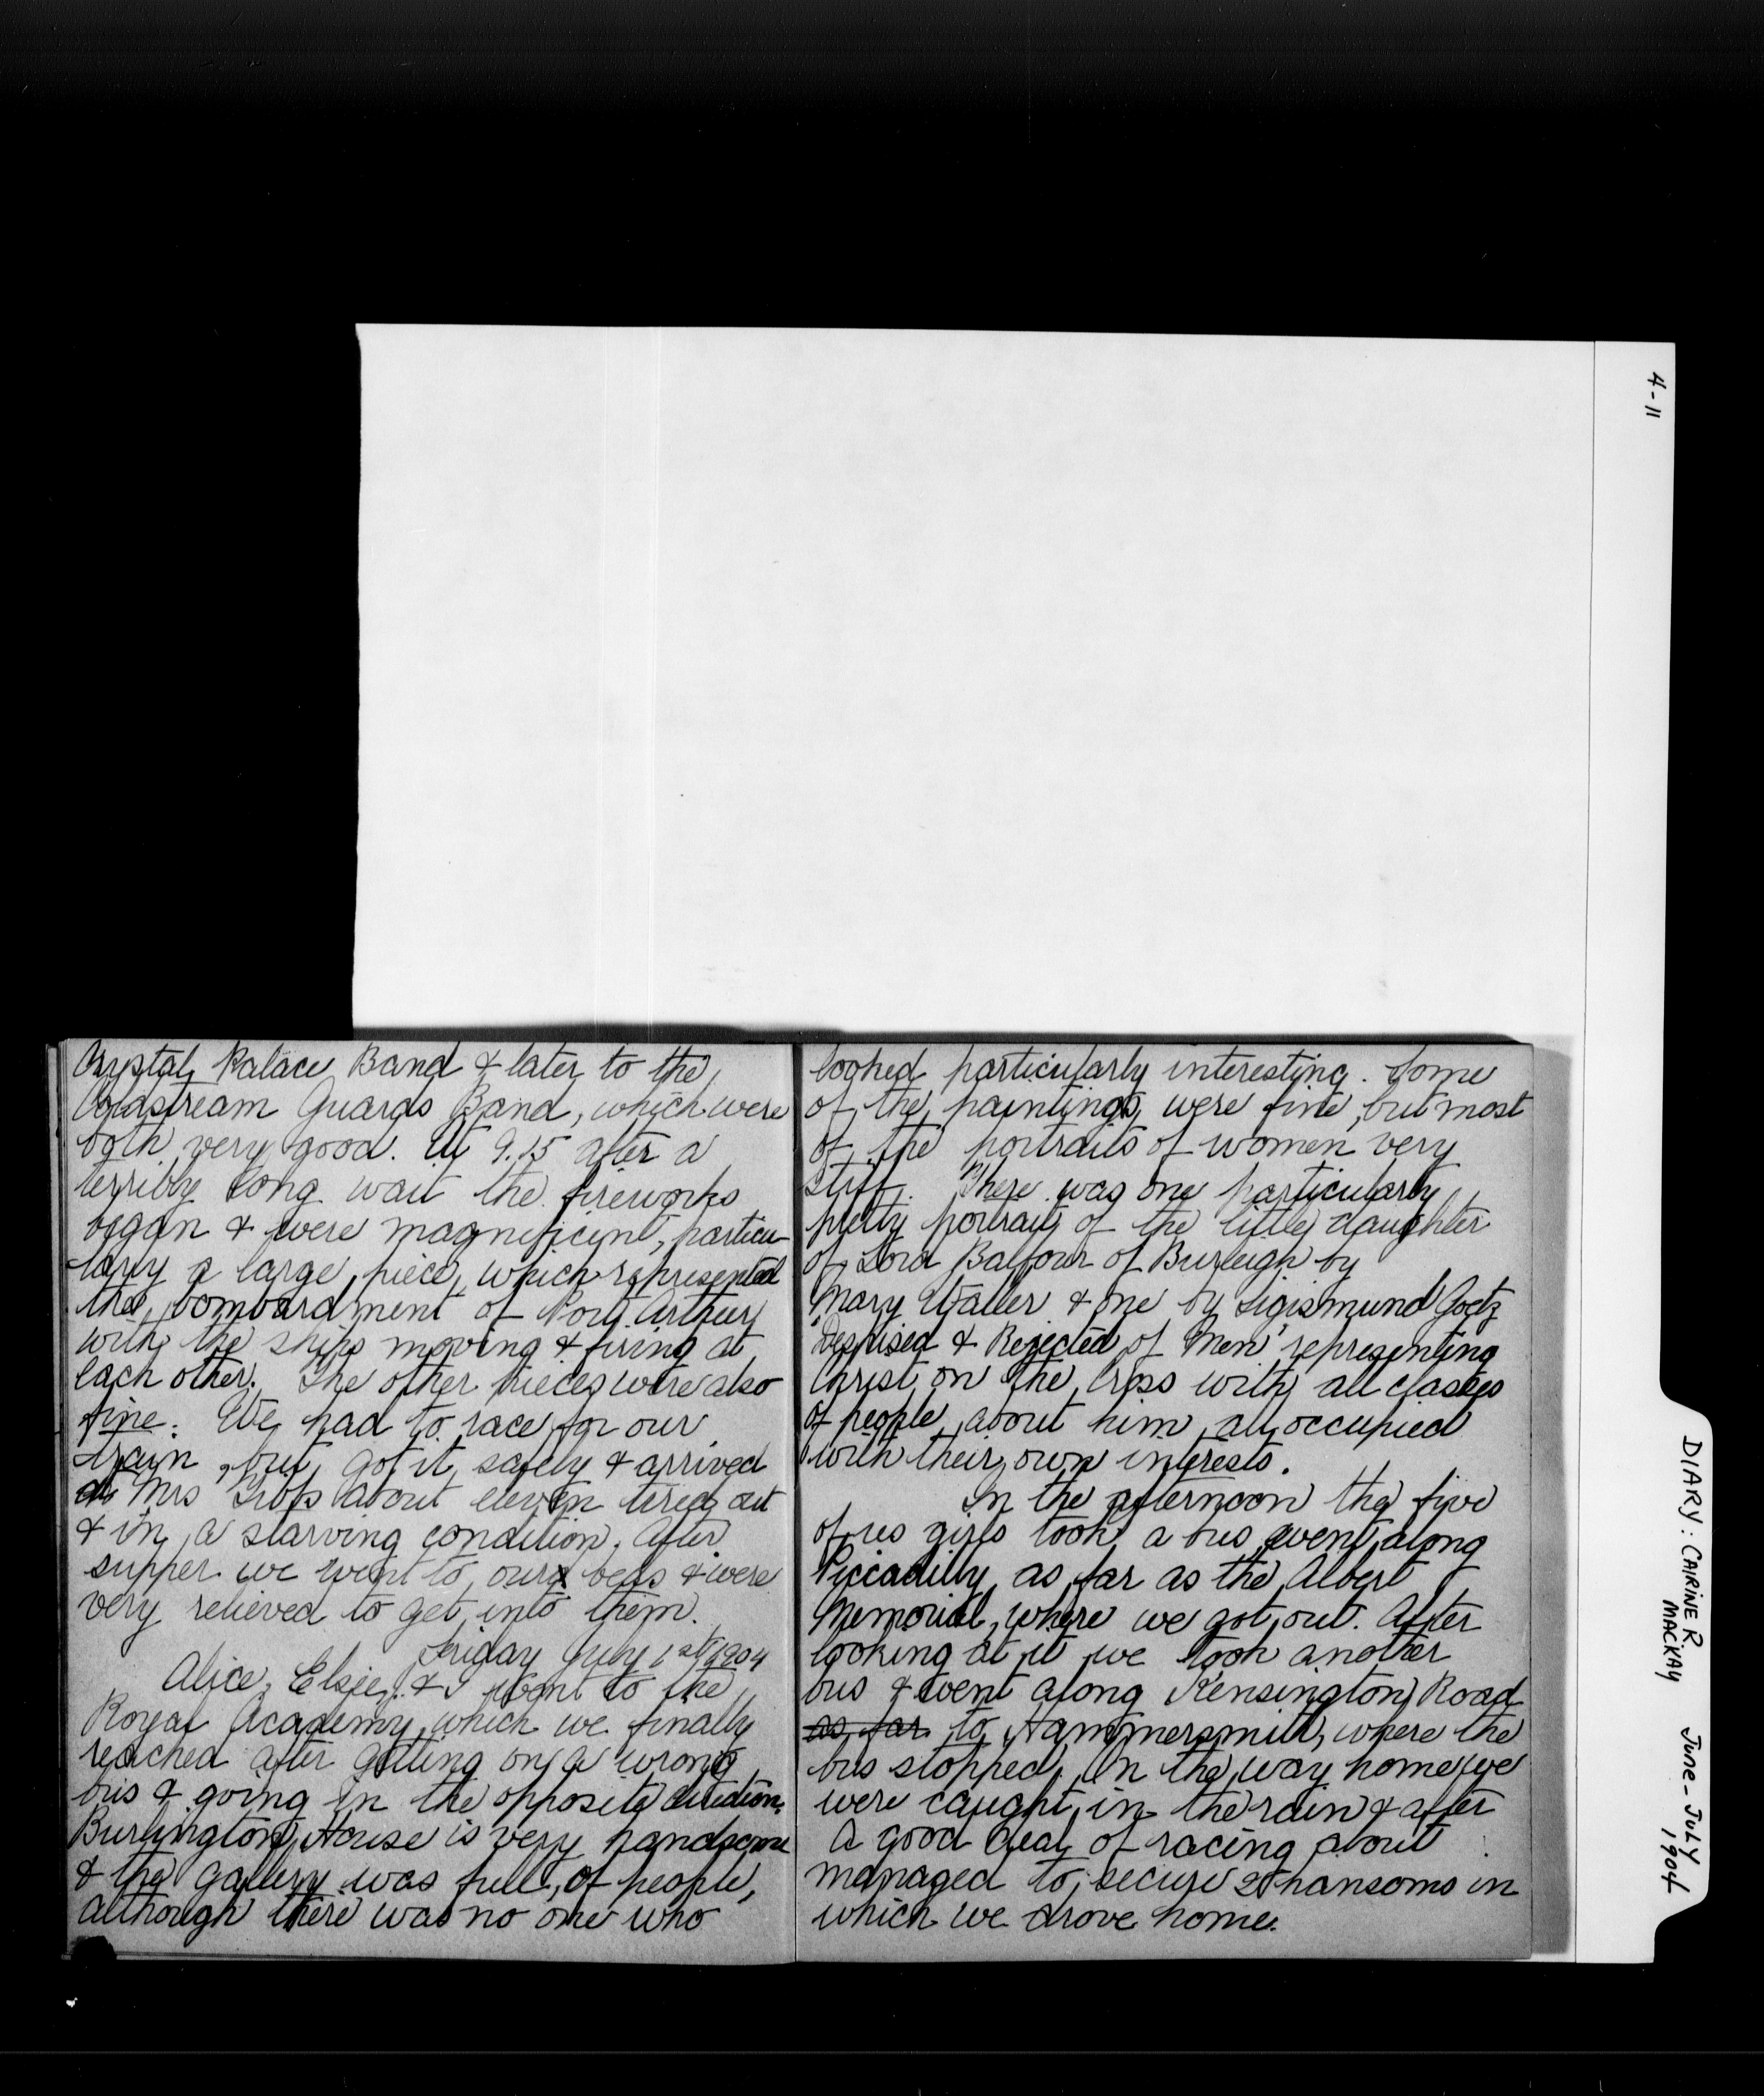 4-11
DIARY: CARINE R. MACKAY June - July 1904
Crystal Palace Band & later to the
Coldstream Guards Band, which were
both very good. At 9.15 after a
terribly long wait the fireworks
began & were magnificent, particu-
larly a large piece, which represented
the bombardment of Port Arthur
with the ships moving & firing at
each other. The other pieces were also
fine. We had to race for our
train, but got it safely & arrived
at Mrs about eleven tired out
& in a starving condition. After
supper we went to our beds & were
very relieved to get into them.
Friday July 1st 1904
Alice, Elsie, & I went to the
Royal Academy which we finally
reached after getting on a wrong
bus & going in the opposite direction.
Burlington House is very handsome
& the gallery was full of people,
although there was no one who
looked particularly interesting. Some
of the paintings were fine, but most
of the portraits of women very
stiff. There was one particularly
pretty portrait of the little daughter
of Lord Balfour of Burleigh by
Mary Waller & one by Sigismund Goetz
'Despised & Rejected of Men' representing
Christ on the Cross with all classes
of people about him all occupied
with their own interests.
In the afternoon the five
of us girls took a bus went along
Piccadilly as far as the Albert
Memorial, where we got out. After
looking at it we took another
bus & went along Kensington Road
as far to Hammersmith, where the
bus stopped. On the way home we
were caught in the rain & after
a good deal of racing about
managed to secure 2 hansoms in
which we drove home.